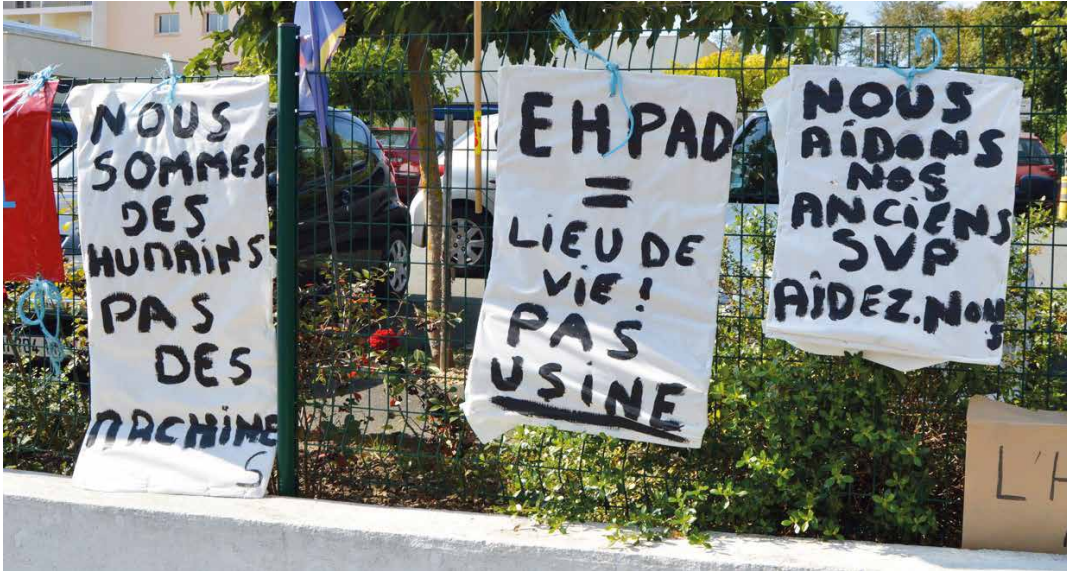 NOUS
SOMMES
DES
HUMAINS
PAS
DES
MACHINE
S
EHPAD
=
LIEU DE
VIE !
PAS
USINE
NOUS
AÏDONS
NOS
ANCIENS
SVP
AÎDEZ.NOUS
L'H